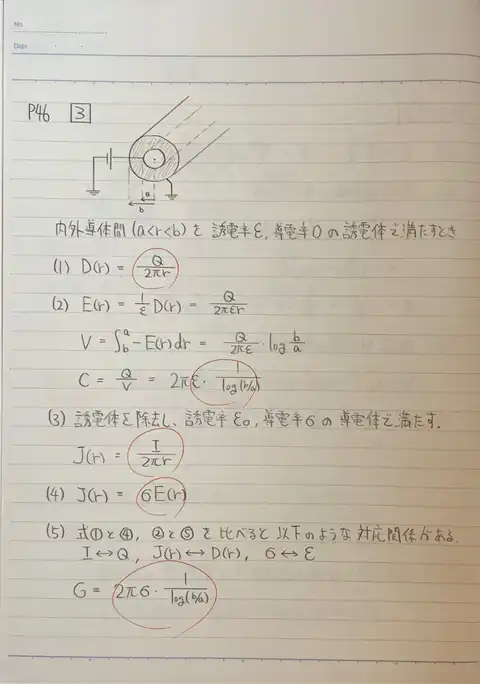 No.
Date
P46 3
a
b
内外導体間 (a<r<b) を 誘電率 ε, 導電率 0 の誘電体で満たすとき
(1) D(r) = Q/2πr
(2) E(r) = 1/ε D(r) = Q/2πεr
V = ∫_b^a -E(r)dr = Q/2πε · log b/a
C = Q/V = 2πε · 1/log(b/a)
(3) 誘電体を除去し、誘電率 ε₀, 導電率 σ の導電体で満たす.
J(r) = I/2πr
(4) J(r) = σE(r)
(5) 式①と④, ②と⑤ を比べると 以下のような対応関係がある.
I↔Q, J(r)↔D(r), σ↔ε
G = 2πσ · 1/log(b/a)